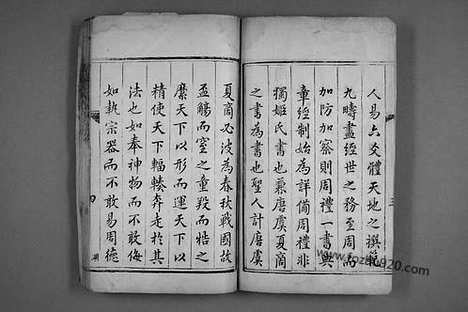 人易六爻體天地之撰範
九疇盡經世之務至周而
加防加察則周禮一書與
章經制始為詳備周禮非
獨姬氏書也兼唐虞夏商
之書為書也聖人計唐虞
三
夏商必波為春秋戰國故
盃觴而窒之童羖而牿之
縻天下以形而運天下以
精使天下輻輳奔走於其
法也如奉神物而不敢侮
如執宗器而不敢易周德
四